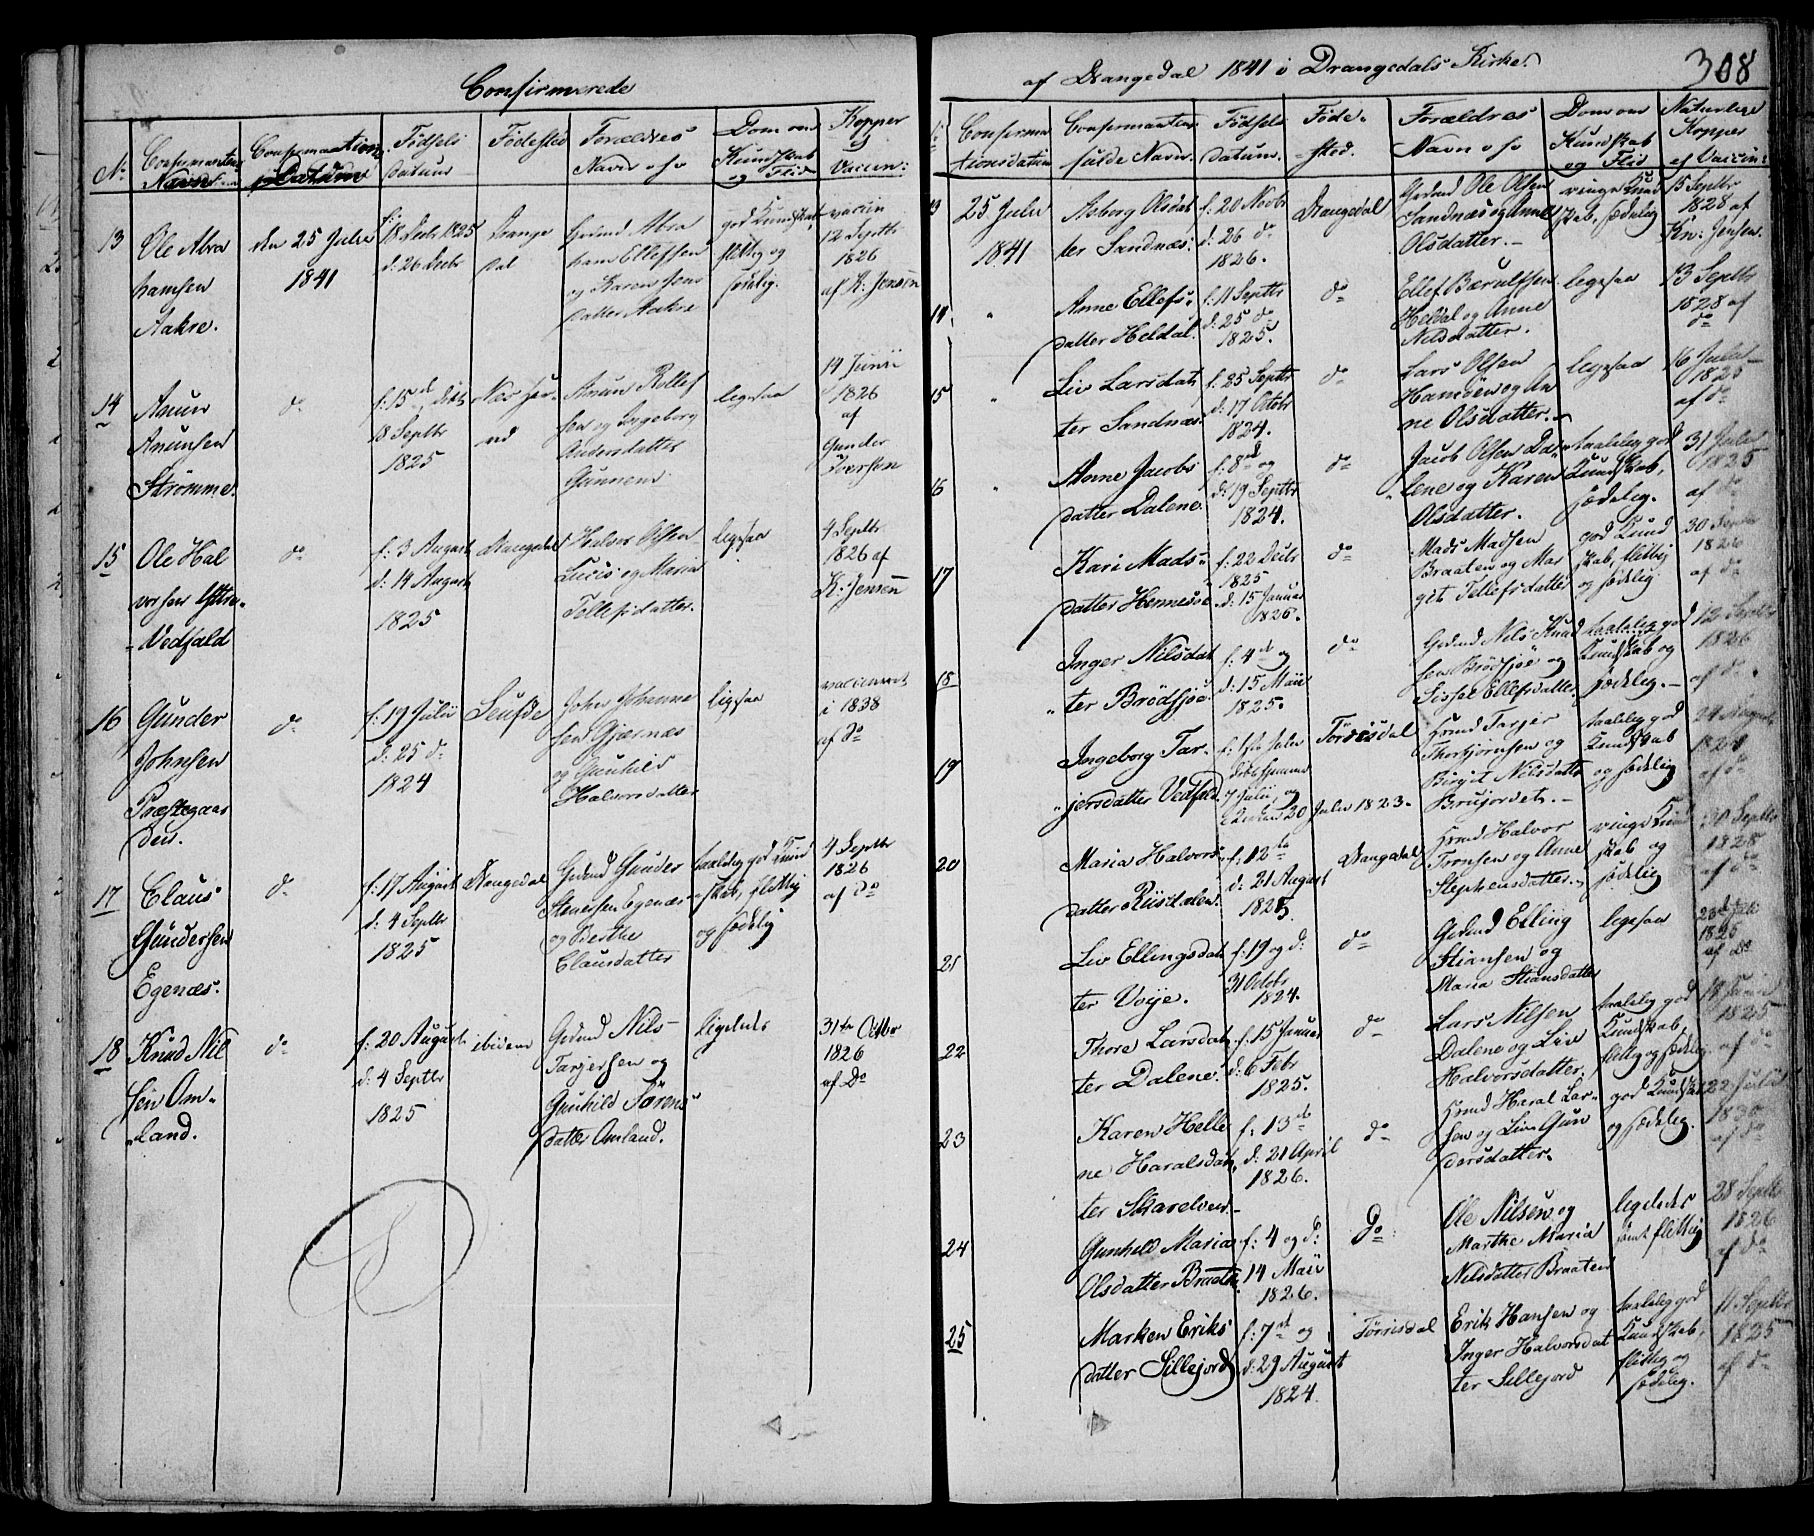 Confirmerede
No
Confirmantens
Navn
Confirmations
Datum
Fødsels
datum
Fødested
Forældres
Navn
Dom om
Kundskab
og Flid
Kopper
og
Vaccin:
13
Ole Abra
hamsen
Aakre.
den 25 Julii
1841
f: 18 Decbr 1825
d: 26 Decbr
Drange
dal
Abra
ham Ellefsen
og Karen Jens
datter Aakre
god Kundskab
flittig og
sædelig.
vaccin
12 Septbr
1826
af K: Jensen
14
Anun
Anunsen
Strømme.
do
f: 15
18 Septbr
1825
Anun Rollef
sen og Ingeborg
Andersdatter
Gunnens
legesaa
14 Junii
1826
af
Gunder
Iversen
15
Ole Hal
vorsen
Vedfald
do
f: 3 August
d: 14 August
1825
Drangedal
Halvor Olsen
og Maria
Tellefsdatter.
ligesaa
4 Septbr
1826 af
K: Jensen
16
Gunder
Johnsen
Præstegaar
den.
do
f: 19 Julii
d: 25 do
1824
John Johanne
sen Gjærnæs
og Gunhild
Halvorsdatter
ligesaa
vaccineret
i 1838
af do
17
Claus
Gundersen
Egenæs.
do
f: 17 August
d: 4 Septbr
1825
Drangedal
Gunder
Stenersen Egenæs
og Berthe
Clausdatter
taalelig god Kund
skab, flittig
og sædelig
4 Septbr
1826
af do
18
Knud Nil
sen Om-
land.
do
f: 20 August
d: 4 Septbr
1825
ibidem
Nils
Tarjersen og
Gunhild Sørens
datter Omland.
ligeledes
31te Octbr
1826
af do
af Drangedal 1841 i Drangedals Kirke.
308
Confirma
tionsdatum
Confirmantens
fulde Navn.
Fødsels
datum.
Føde-
sted.
Forældres
Navn
Dom om
Kundskab
og Flid
Naturlige
Kopper
el Vaccin:
13
25 Julii
1841
Aaborg Olsdat
ter Sandnæs.
f: 20 Novbr
d: 26 do
1826.
Drangedal
Ole Olsen
Sandnæs og Anne
Olsdatter.
ringe Kund
skab, sædelig
15 Septbr
1828 af
Kn: Jensen.
14
"
Anne Ellefs
datter Heldal.
f: 11 Septbr
d: 25 do
1825.
do
Ellef Bærulfsen
Heldal og Anne
Nilsdatter.
legesaa
13 Septbr
1828 af
do
15
"
Liv Larsdat
ter Sandnæs
f: 25 Septbr
d: 17 Octobr
1824.
do
Lars Olsen
og An
ne Olsdatter.
legesaa
16 Julii
1825
af do
16
"
Anne Jacobs
datter Dalene.
f: 8de og
d: 19 Septbr
1824.
do
Jacob Olsen Da
lene og Karen
Olsdatter.
taalelig god
Kundskab,
sædelig.
31 Julii
1825
af do
17
Kari Mads
datter Hennesøe
f: 22 Decbr
1825
d: 15 Januar
1826.
do
Mads Madsen
Braaten og Mar
git Tellefsdatter
god Kund
skab, flittig
og sædelig.
30 Septbr
1826
af do
18
Inger Nilsdat
ter Brødsjøe
f: 4de og
d: 15 Maii
1825.
do
Nils Knud
sen Brødsjøe og
Sissel Ellefsdatter
taalelig god
Kundskab og
sædelig.
12 Septbr
1826
af do
19
Ingeborg Tar
jersdatter Vedfald.
7 Julii og
20 Julii 1823.
Tørrisdal
Tarjer
Thorbjørnsen og
Birgit Nilsdatter
Brujordet.
taalelig god
Kundskab
og sædelig
24 August
1824
af do
20
Maria Halvors
datter
f: 12te
d: 21 August
1825.
Drangedal
Halvor
Tronsen og Anne
Stephensdatter.
ringe Kund
skab og
sædelig
1828
af do
21
Liv Ellingsdat
ter Voje.
f: 19 og d:
31 Octobr
1824.
do
Elling
Stiansen og
Maria Stiansdatter
legesaa
1825
af do
22
Thore Larsdat
ter Dalene.
f: 15 Januar
d: 6 Febr
1825.
do
Lars Nilsen
Dalene og Liv
Halvorsdatter.
taalelig god
Kundskab,
flittig og sædelig.
1825
af do
23
Karen Helle
ne Haralsdat
ter Skarelven
f: 13de
d: 21 April
1826.
do
Haral Lar
sen og Liv Gun
dersdatter.
god Kundskab
og sædelig.
22 Julii
1830
af do
24
Gunhild Maria
Olsdatter Braaten
f: 4 og d:
14 Maii
1826.
do
Ole Nilsen og
Marthe Maria
Nilsdatter Braaten
ligeledes
samt flittig
28 Septbr
1826
af do
25
Marken Eriks
datter Sillejord
f: 7de og
d: 29 August
1824.
Tørrisdal
Erik Hansen og
Inger Halvorsdat
ter Sillejord
taalelig god
Kundskab,
flittig og
sædelig.
11 Septbr
1825
af do